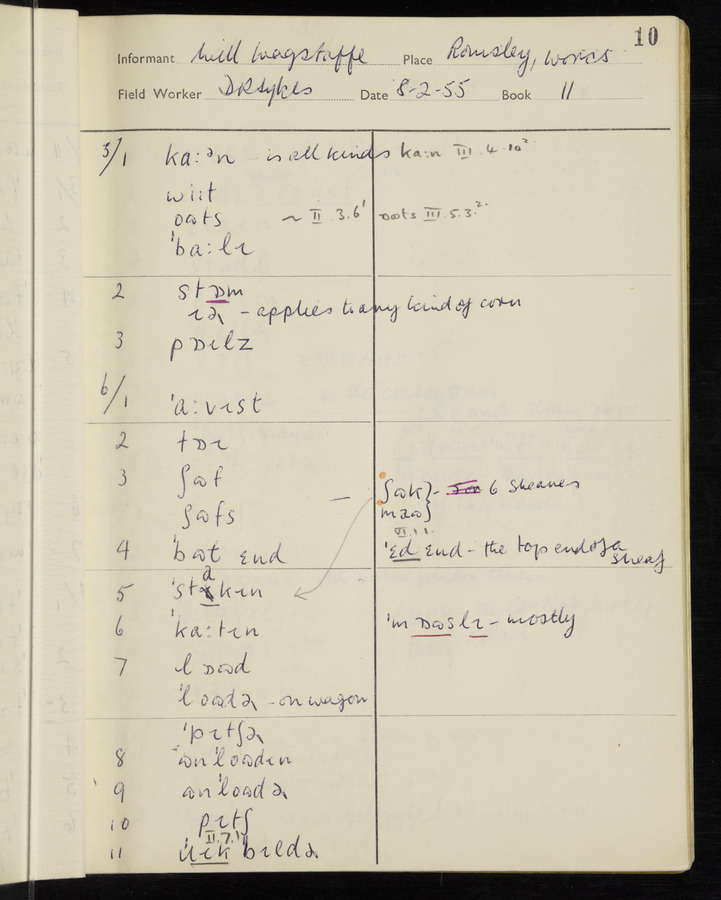 10
Informant Will Wagstaffe Place Romsley, Worcs
Field Worker D R Sykes Date 8-2-55 Book II
3/1 kaːən is all kinds kaːn III.4.10²
wiit
ɒɷts ~ II.3.6¹ ɒɷts III.5.3²
ˈbaːlɪ
2 stɒm
ɪə – applies to any kind of corn
3 pɒɪlz
6/1 ˈaːvɪst
2 tɒɪ
3 ʃɷf — ʃɷk} – 6 sheaves
ʃɷfs mɷɷ}
VI.1.1
4 ˈbɷt ɛnd ˈɛd ɛnd – the top end of a sheaf
5 ˈstakɪn
6 ˈkaːtɪn ˈmɒɷslɪ – mostly
7 lɒɷd
ˈlɷɷdə – on wagon
ˈpɪtʃə
8 ɷnˈlɷɷdɪn
9 ɷnˈlɷɷdə
10 pɪtʃ
II.7.1
11 ˈɪɪk bɪldə